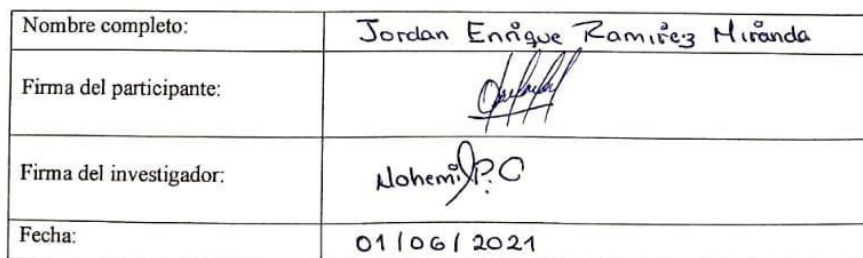 Nombre completo: Jordan Enrique Ramirez Miranda
Firma del participante:
Firma del investigador: Nohemi P.C
Fecha: 01/06/2021